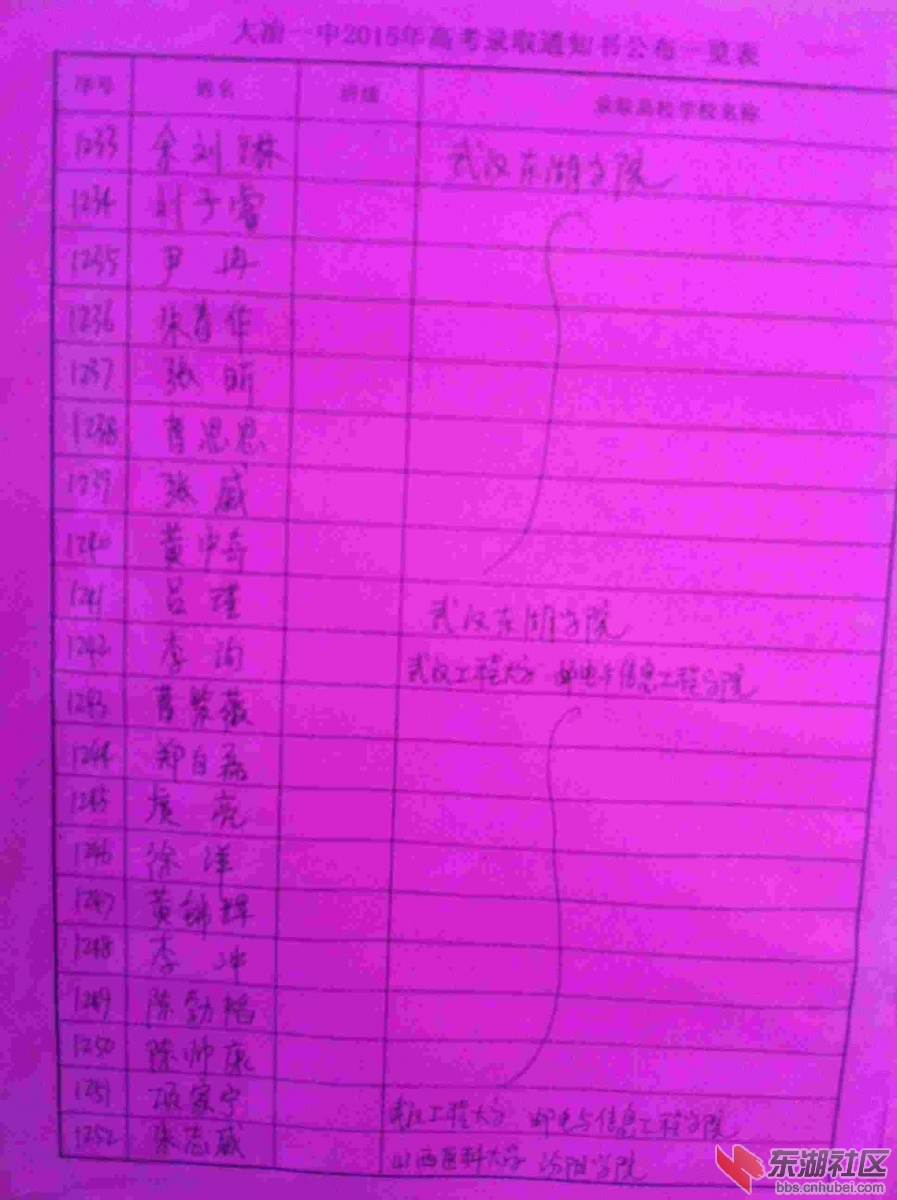 大冶一中2015年高考录取通知书公布一览表
序号 姓名 班级 录取高校学校名称
1233 余刘 武汉东湖学院
1234 刘子睿
1235 尹冉
1236 张春华
1237 张昕
1238 曹思思
1239 张威
1240 黄中奇
1241 吕瑾 武汉东湖学院
1242 李洵 武汉工程大学 邮电与信息工程学院
1243 曹紫薇
1244 郑自磊
1245 虞亮
1246 徐洋
1247 黄锦辉
1248 李坤
1249 陈劲韬
1250 陈帅康
1251 项家宁 武汉工程大学 邮电与信息工程学院
1252 张志威 山西医科大学 汾阳学院
东湖社区
bbs.cnhubei.com